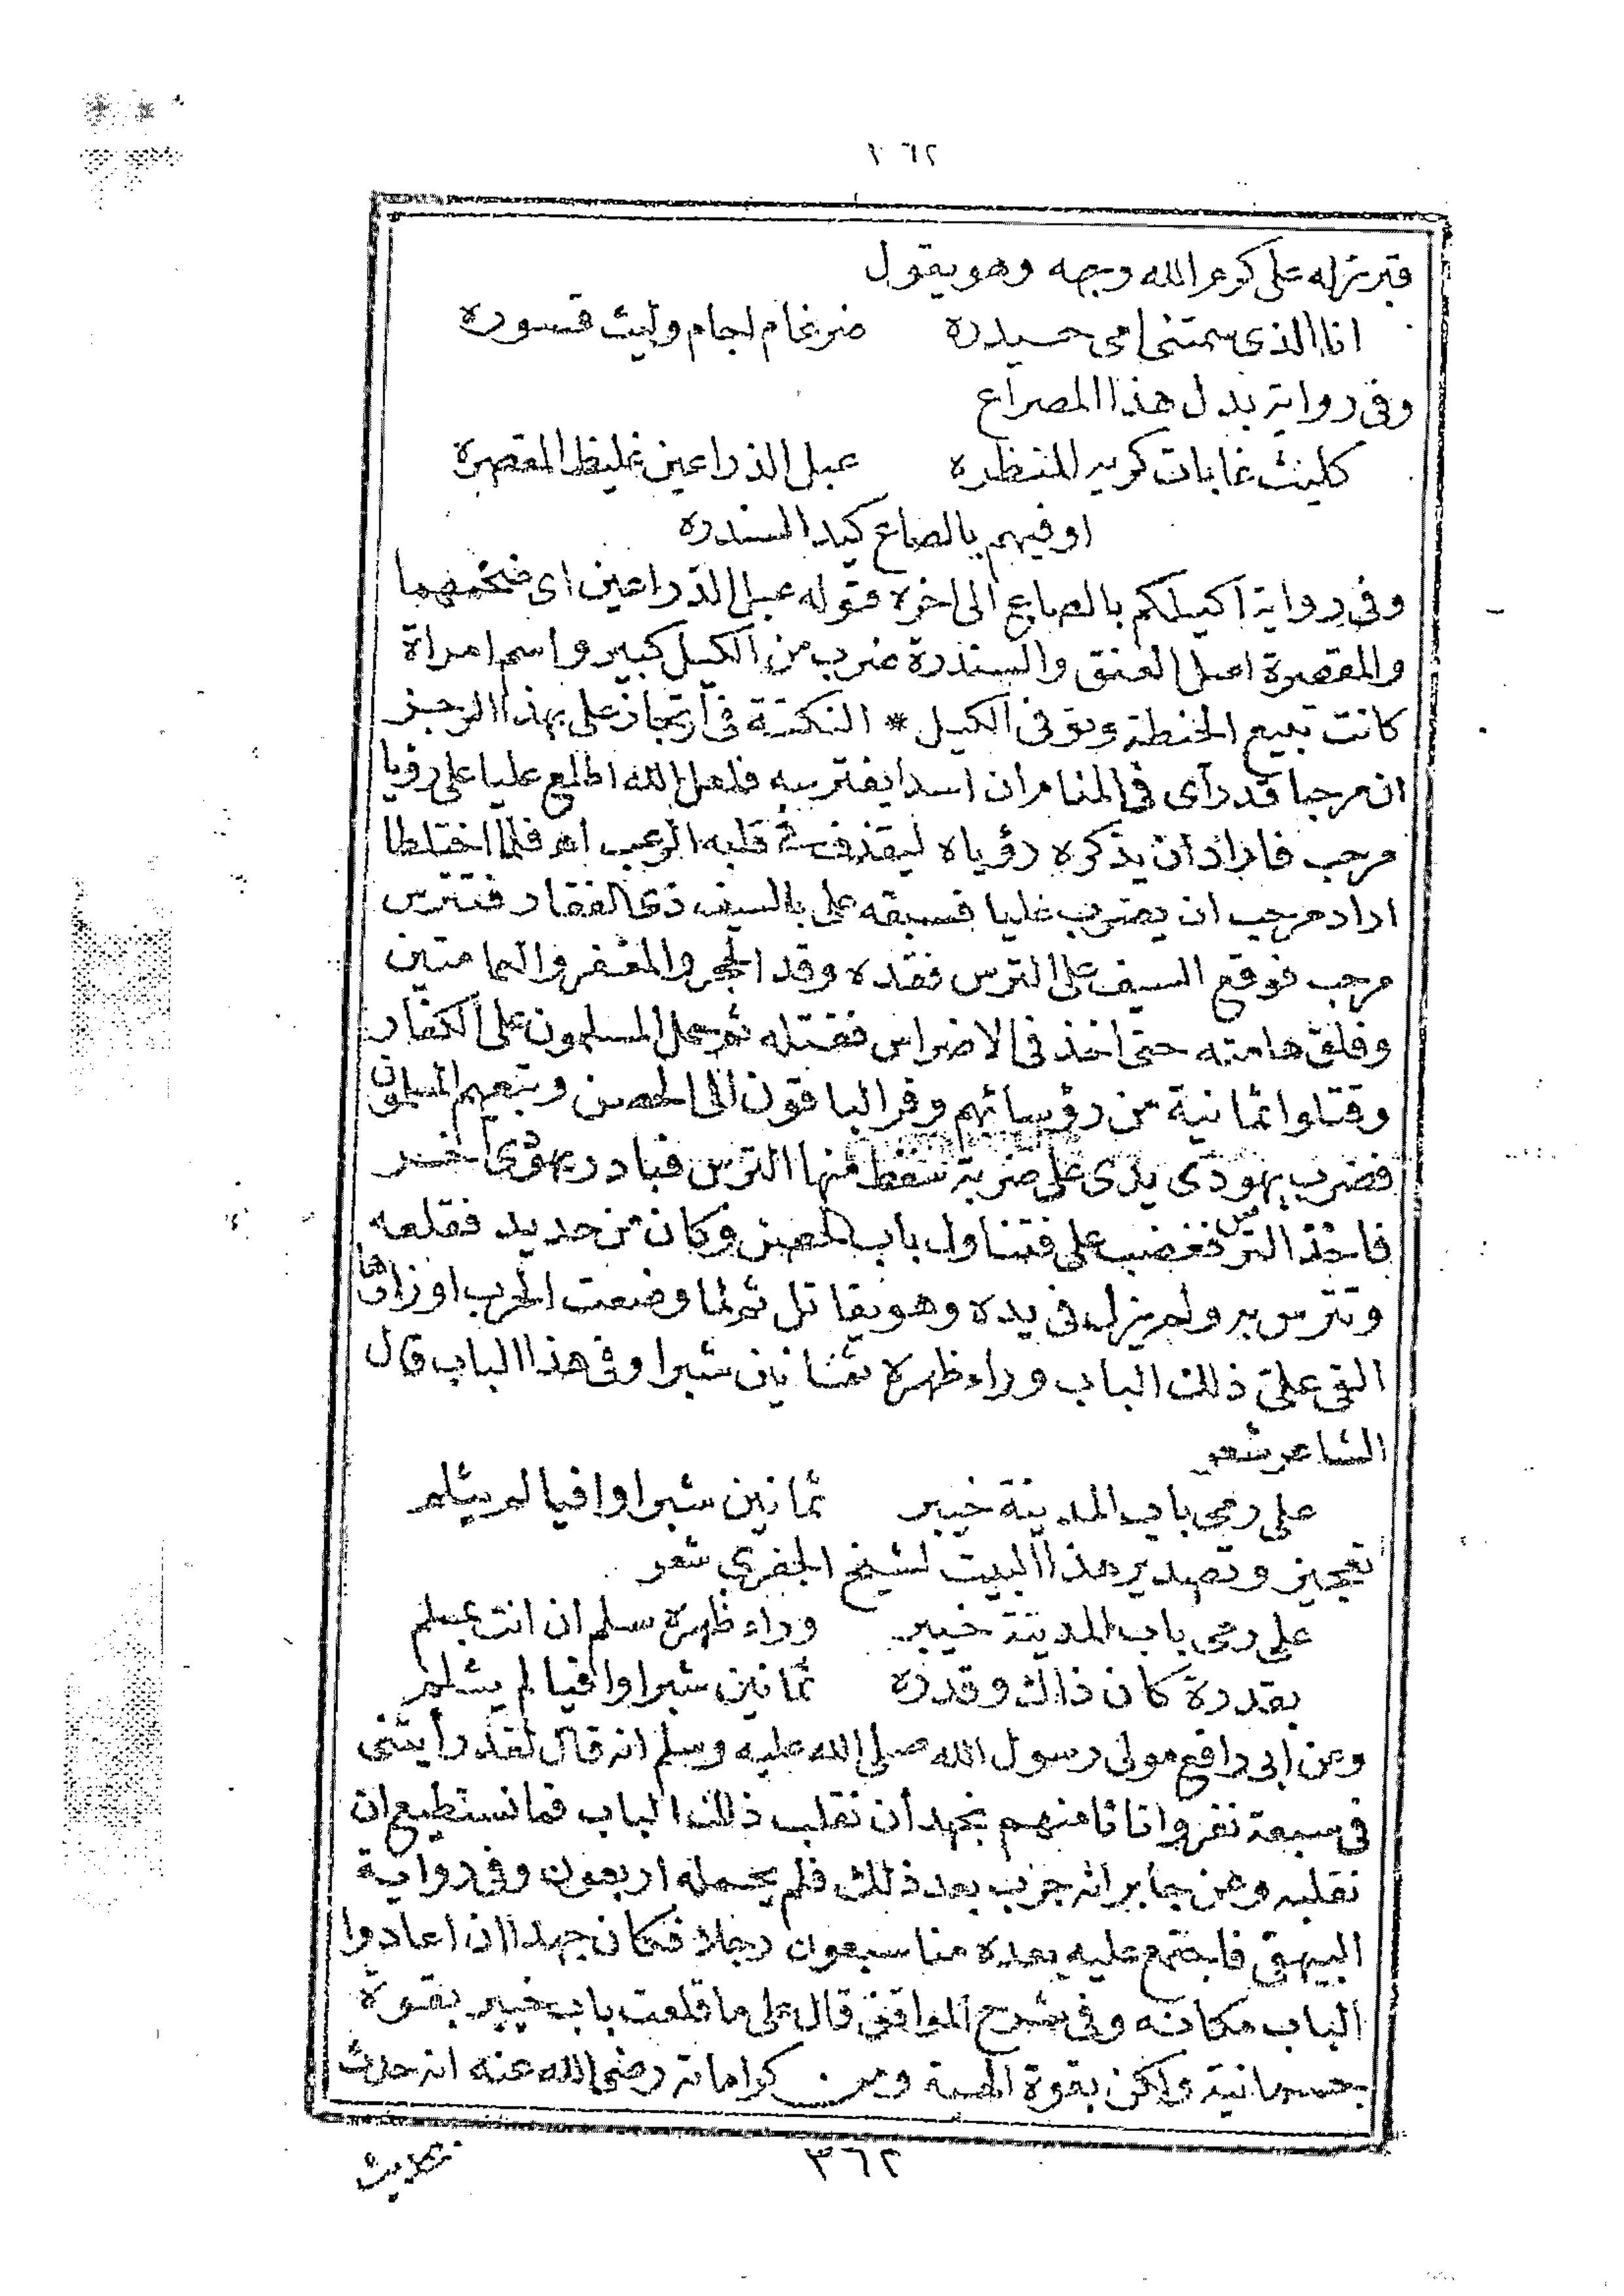 ٣٦٢
فبرز له على كرم الله وجهه وهو يقول
انا الذى سمتنى امى حيدره ضرغام اجام وليث قسوره
وفى رواية بدل هذا المصراع
كليث غابات كريه المنظره عبل الذراعين غليظ القصره
اوفيهم بالصاع كيل السندره
وفى رواية اكيلكم بالصاع الى اخره قوله عبل الذراعين اى ضخمهما
والقصرة اصل العنق والسندرة ضرب من الكيل كبير واسم امراة
كانت تبيع الحنطة وتوفى الكيل * النكتة فى ارتجاز على بهذا الرجز
ان مرحبا قد رآى فى المنام ان اسدا يفترسه فلعل الله اطلع عليا على رؤيا
مرحب فاراد ان يذكره رؤياه ليقذف فى قلبه الرعب اه فلما اختلطا
اراد مرحب ان يضرب عليا فسبقه على بالسيف ذى الفقار فتترس
مرحب فوقع السيف على الترس فقده وقد الحجر والمغفر والعمامتين
وفلق هامته حتى اخذ فى الاضراس فقتله ثم حمل المسلمون على الكفار
وقتلوا ثمانية من رؤسائهم وفر الباقون الى الحصن وتبعهم المسلمون
فضرب يهودى يدى على ضربة سقط منها الترس فبادر يهودى اخر
فاخذ الترس فغضب على فتناول باب الحصن وكان من حديد فقلعه
وتترس به ولم يزل فى يده وهو يقاتل ثم لما وضعت الحرب اوزارها
القى على ذلك الباب وراء ظهره ثمانين شبرا وفى هذا الباب قال
الشاعر شعر
على رمى باب المدينة خيبر ثمانين شبرا وافيا لم يثلم
تعجيز وتصدير هذا البيت لشيخ الجفري شعر
على رمى باب المدينة خيبر وراء ظهره سلم ان انت مسلم
بقدرة كان ذاك وقدره ثمانين شبرا وافيا لم يثلم
وعن ابى رافع مولى رسول الله صلى الله عليه وسلم انه قال لقد رأيتنى
فى سبعة نفر وانا ثامنهم نجهد أن نقلب ذلك الباب فما نستطيع ان
نقلبه وعن جابر انه جرب بعد ذلك فلم يحمله اربعون وفى رواية
البيهقى فاجتمع عليه بعده منا سبعون رجلا فكان جهدا ان اعادوا
الباب مكانه وفى شرح المواقف قال على ما قلعت باب خيبر بقوة
جسمانية ولكن بقوة الهمة ومن كراماته رضى الله عنه انه حدث
٣٦٢
بحديث